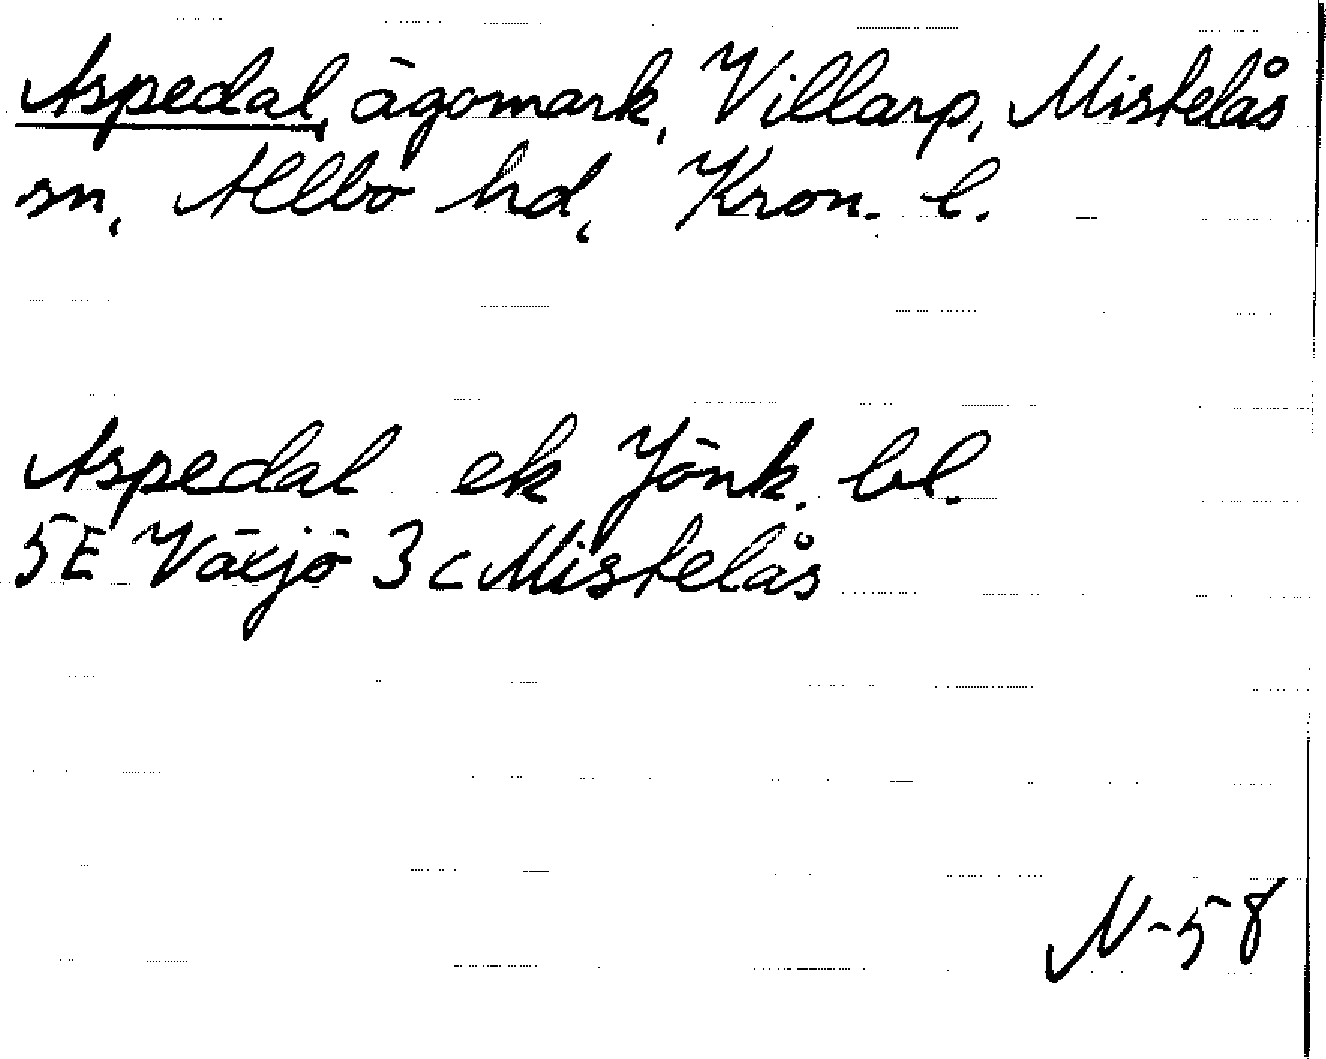 Aspedal, ägomark, Villarp, Mistelås
sn, Allbo hd, Kron. l.
Aspedal ek Jönk. bl.
5E Växjö 3c Mistelås
N-58